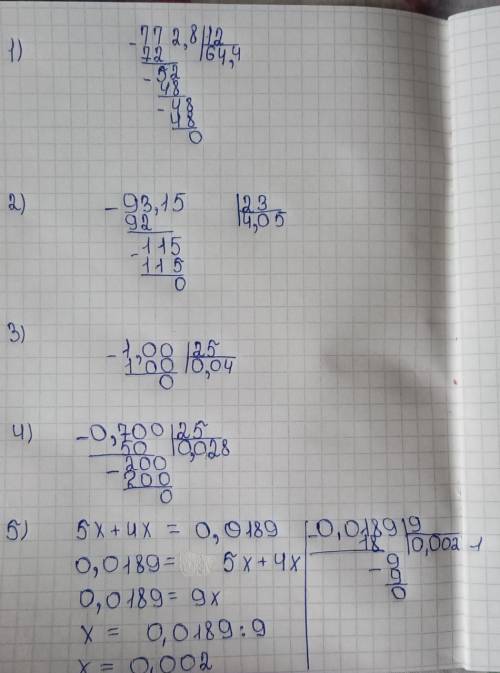 1) -772,8|12
72 64,4
-52
48
-48
48
0
2) -93,15 |23
92 4,05
-115
115
0
3) -1,00|25
1 00 0,04
0
4) -0,700|25
50 0,028
-200
200
0
5) 5x+4x = 0,0189
0,0189= 5x+4x
0,0189= 9x
x = 0,0189:9
x = 0,002
-0,0189|9
18 0,002 1
-9
9
0